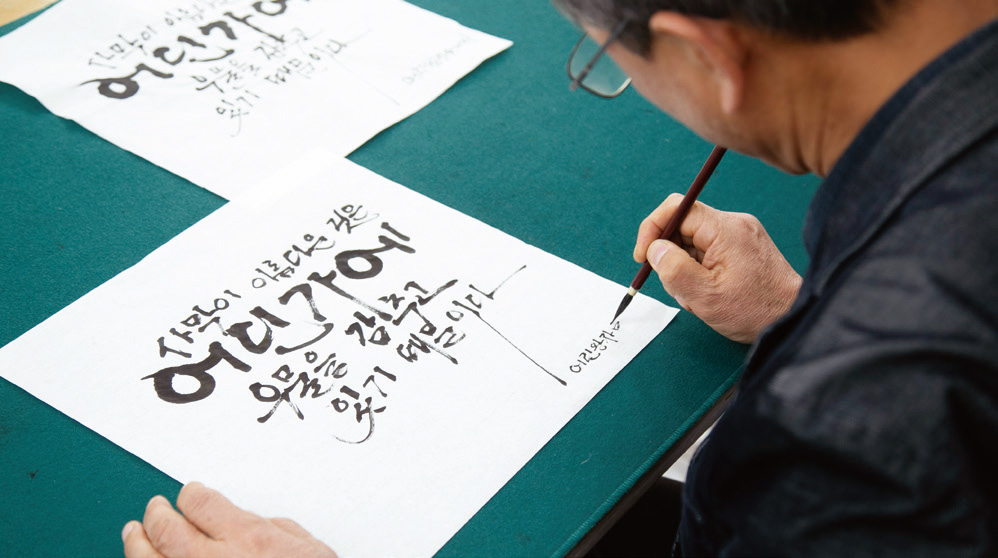 사막이
어딘가에
우물을 감추고
있기 때문이다
사막이 아름다운 것은
어딘가에
우물을 감추고
있기 때문이다